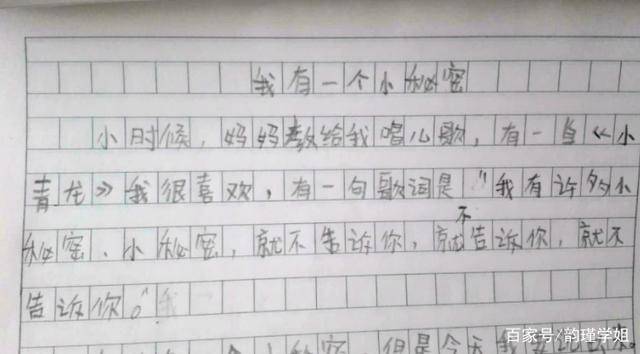 我有一个小秘密
小时候，妈妈教给我唱儿歌，有一首《小
青龙》我很喜欢，有一句歌词是"我有许多小
秘密、小秘密，就不告诉你，就不告诉你，就不
告诉你。"
个小秘密，但是今天我
百家号/韵瑾学姐